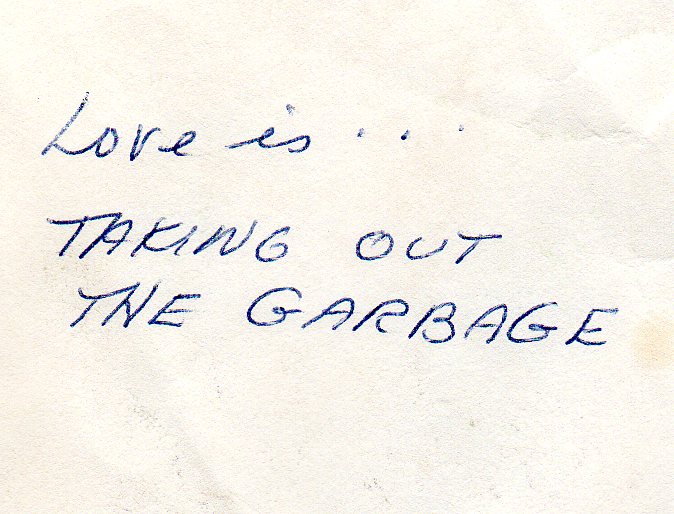 Love is...
TAKING OUT
THE GARBAGE